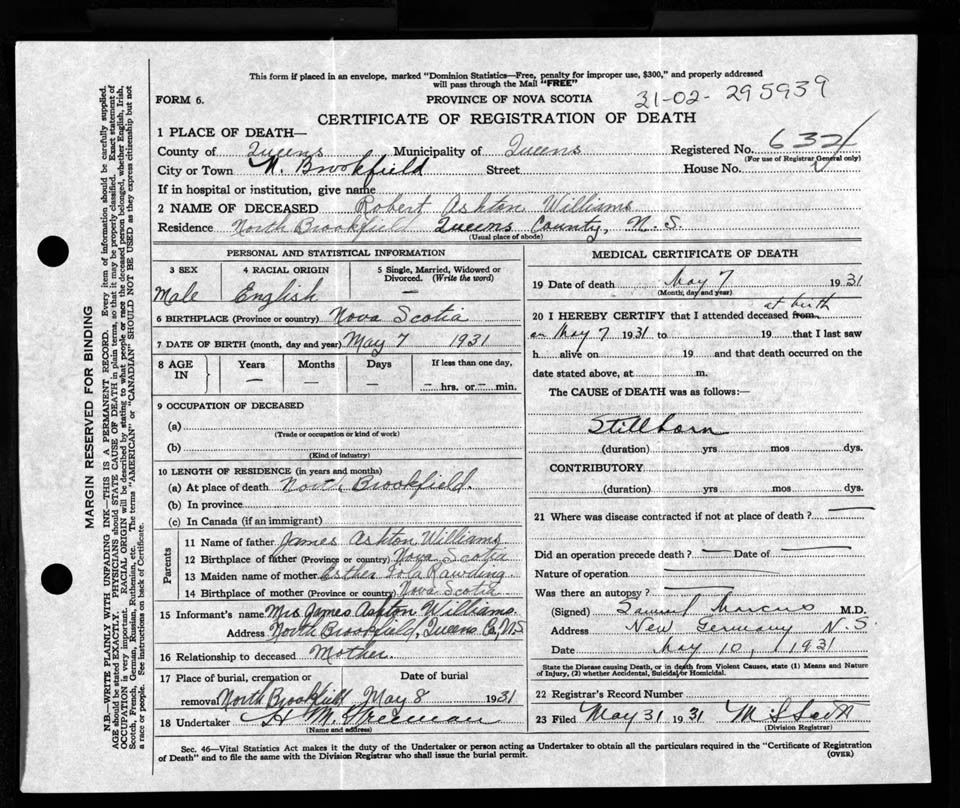 This form if placed in an envelope, marked "Dominion Statistics—Free, penalty for improper use, $300," and properly addressed
will pass through the Mail "FREE"
FORM 6.
PROVINCE OF NOVA SCOTIA
31-02- 295939
CERTIFICATE OF REGISTRATION OF DEATH
1 PLACE OF DEATH—
County of Queens Municipality of Queens Registered No. 632
(For use of Registrar General only)
City or Town N. Brookfield Street House No.
If in hospital or institution, give name
2 NAME OF DECEASED Robert Ashton Williams
Residence North Brookfield Queens County, N. S.
(Usual place of abode)
PERSONAL AND STATISTICAL INFORMATION
3 SEX 4 RACIAL ORIGIN 5 Single, Married, Widowed or
Divorced. (Write the word)
Male English —
6 BIRTHPLACE (Province or country) Nova Scotia
7 DATE OF BIRTH (month, day and year) May 7 1931
8 AGE IN Years Months Days If less than one day,
— — — — hrs. or — min.
9 OCCUPATION OF DECEASED
(a)
(Trade or occupation or kind of work)
(b)
(Kind of industry)
10 LENGTH OF RESIDENCE (in years and months)
(a) At place of death North Brookfield.
(b) In province
(c) In Canada (if an immigrant)
Parents
11 Name of father James Ashton Williams
12 Birthplace of father (Province or country) Nova Scotia
13 Maiden name of mother Esther Rawding.
14 Birthplace of mother (Province or country) Nova Scotia
15 Informant's name Mrs James Ashton Williams.
Address North Brookfield, Queens Co, N.S
16 Relationship to deceased Mother.
17 Place of burial, cremation or Date of burial
removal North Brookfield May 8 1931
18 Undertaker H M Freeman
(Name and address)
MEDICAL CERTIFICATE OF DEATH
19 Date of death May 7 1931
(Month, day and year)
at birth
20 I HEREBY CERTIFY that I attended deceased from
on May 7 1931 to 19 that I last saw
h alive on 19 and that death occurred on the
date stated above, at m.
The CAUSE of DEATH was as follows:—
Stillborn
(duration) yrs mos dys.
CONTRIBUTORY
(duration) yrs mos dys.
21 Where was disease contracted if not at place of death? —
Did an operation precede death? — Date of —
Nature of operation —
Was there an autopsy? —
(Signed) Samuel Marcus M.D.
Address New Germany N. S.
Date May 10, 1931
State the Disease causing Death, or in death from Violent Causes, state (1) Means and Nature
of Injury, (2) whether Accidental, Suicidal or Homicidal.
22 Registrar's Record Number
23 Filed May 31 1931
(Division Registrar)
Sec. 46—Vital Statistics Act makes it the duty of the Undertaker or person acting as Undertaker to obtain all the particulars required in the "Certificate of Registration
of Death" and to file the same with the Division Registrar who shall issue the burial permit. (OVER)
MARGIN RESERVED FOR BINDING
N.B.—WRITE PLAINLY WITH UNFADING INK—THIS IS A PERMANENT RECORD. Every item of information should be carefully supplied.
AGE should be stated EXACTLY. PHYSICIANS should STATE CAUSE OF DEATH in plain terms, so that it may be properly classified. Exact statement of
OCCUPATION is very important. RACIAL ORIGIN will be described by stating to what people or race the deceased person belonged, whether English, Irish,
Scotch, French, German, Russian, Ruthenian, etc. The terms "AMERICAN" or "CANADIAN" SHOULD NOT BE USED as they express citizenship but not
a race or people. See instructions on back of Certificate.